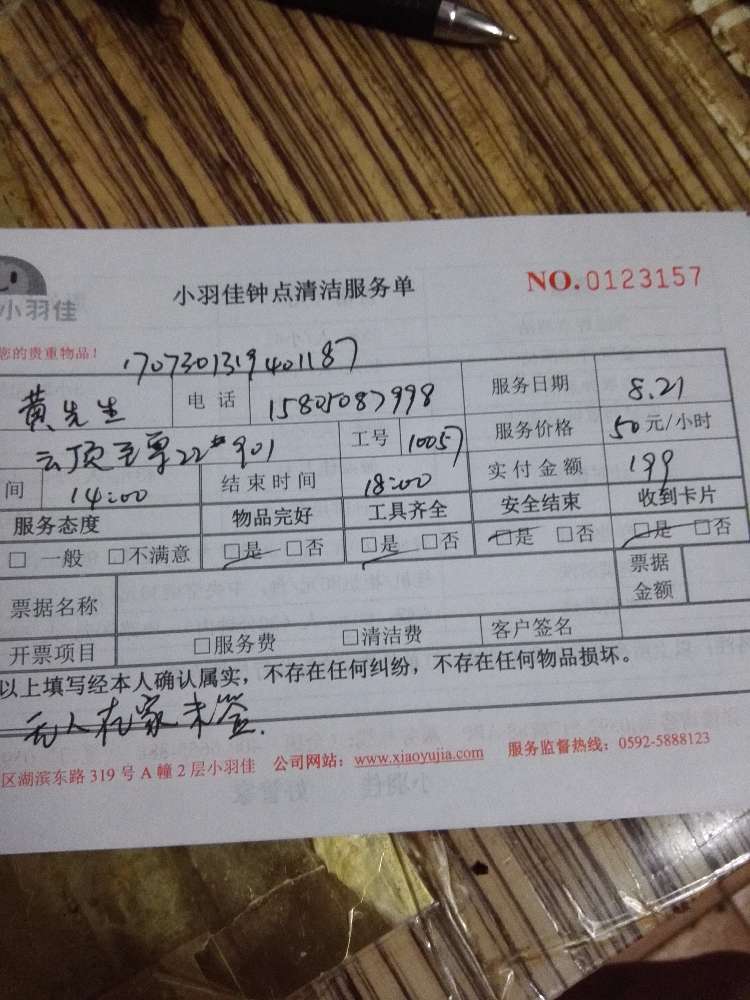 小羽佳
小羽佳钟点清洁服务单 NO.0123157
您的贵重物品！ 1707301319401187
黄先生 电话 15805087998 服务日期 8.21
云顶至尊22# 901 工号 10057 服务价格 50元/小时
间 14:00 结束时间 18:00 实付金额 199
服务态度 物品完好 工具齐全 安全结束 收到卡片
□ 一般 □不满意 □是 □否 □是 □否 □是 □否 □是 □否
票据名称 票据金额
开票项目 □服务费 □清洁费 客户签名
以上填写经本人确认属实，不存在任何纠纷，不存在任何物品损坏。
无人在家未签.
区湖滨东路 319 号 A 幢 2 层小羽佳 公司网站：www.xiaoyujia.com 服务监督热线：0592-5888123